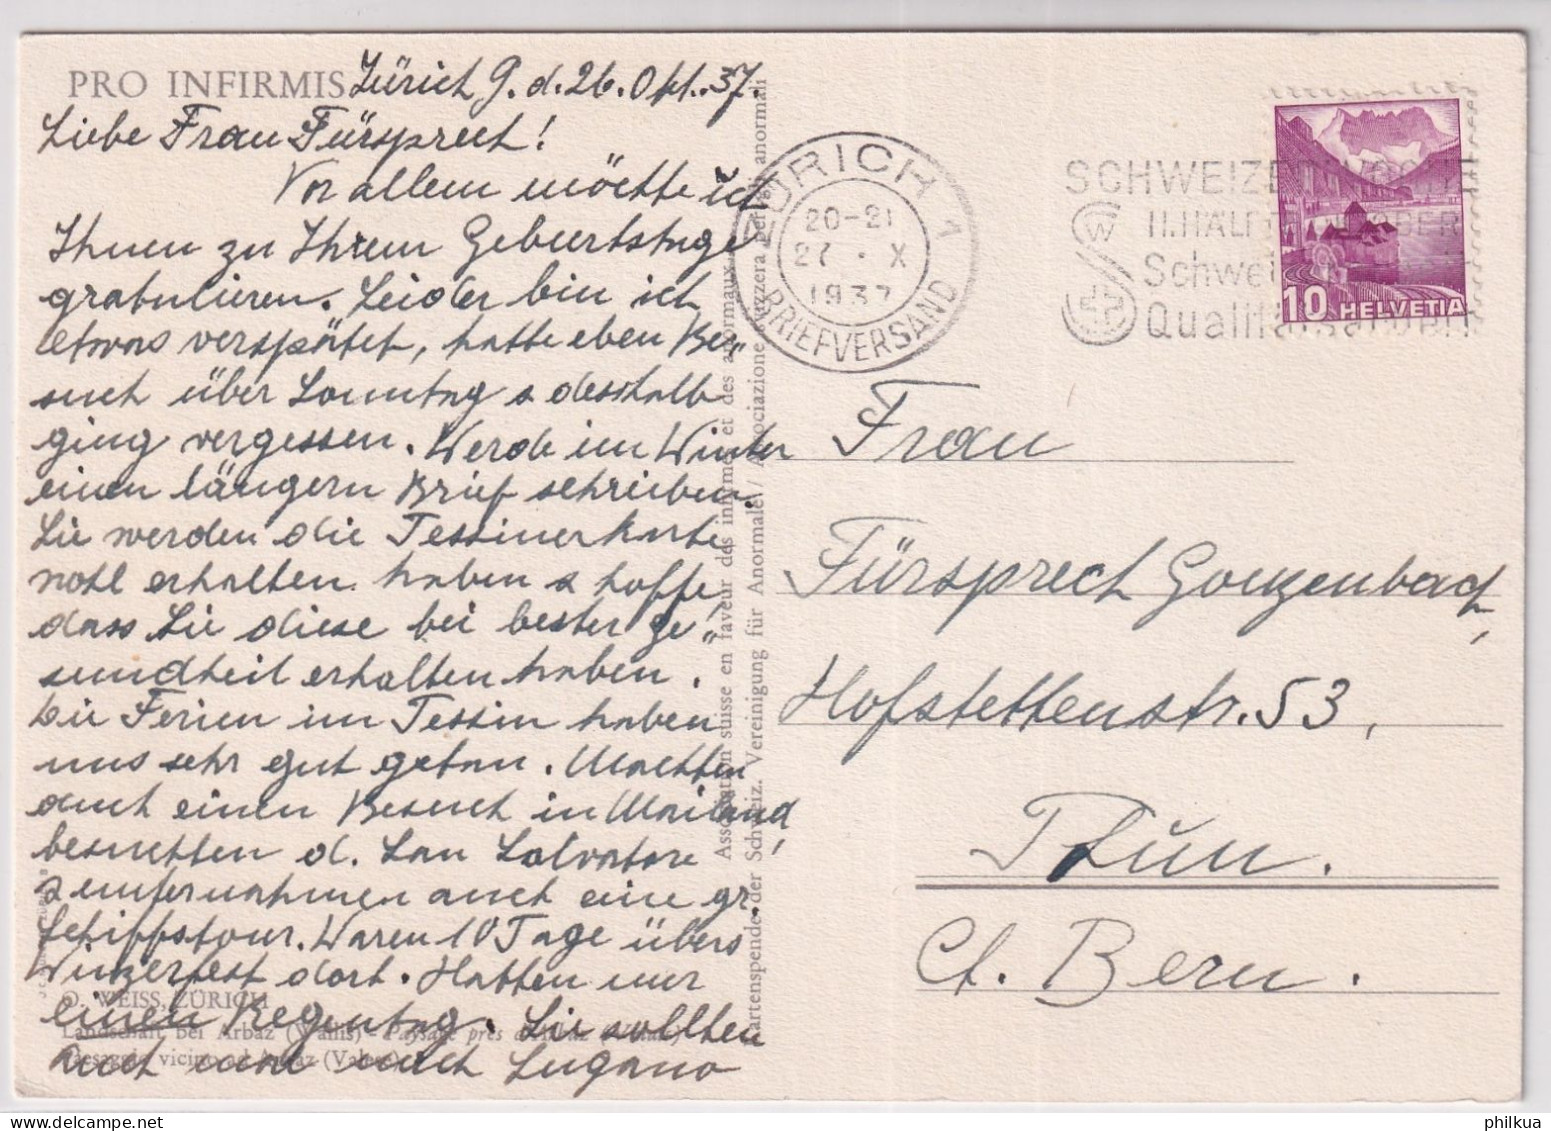 PRO INFIRMIS
Zürich 9. d. 26. Okt. 37.
Liebe Frau Fürsprech!
Vor allem möchte ich
Ihnen zu Ihrem Geburtstage
gratulieren. Leider bin ich
etwas verspätet, hatte eben Be„
such über Sonntag & desshalb
ging vergessen. Werde im Winter
einen längern Brief schreiben.
Sie werden die Tessinerkarte
wohl erhalten haben & hoffe,
dass Sie diese bei bester Ge„
sundheit erhalten haben.
Die Ferien im Tessin haben
uns sehr gut getan. Machten
auch einen Besuch in Mailand,
besuchten d. San Salvatore
& unternahmen auch eine gr.
Schiffstour. Waren 10 Tage übers
Winzerfest dort. Hatten nur
einen Regentag. Sie sollten
auch mal nach Lugano
O. WEISS, ZÜRICH
Landschaft bei Arbaz (Wallis) - Paysage près d'Arbaz
Paesaggio vicino ad Arbaz
Association suisse en faveur des infirmes et des anormaux
Kartenspende der Schweiz. Vereinigung für Anormale / Associazione svizzera per gli anormali
ZÜRICH 1
20-21
27. X
1937
BRIEFVERSAND
SCHWEIZERWOCHE
II. HÄLFTE OKTOBER
Schweizer
Qualitätsarbeit
10 HELVETIA
Frau
Fürsprech Gonzenbach,
Hofstettenstr. 53,
Thun.
Ct. Bern.
philkua